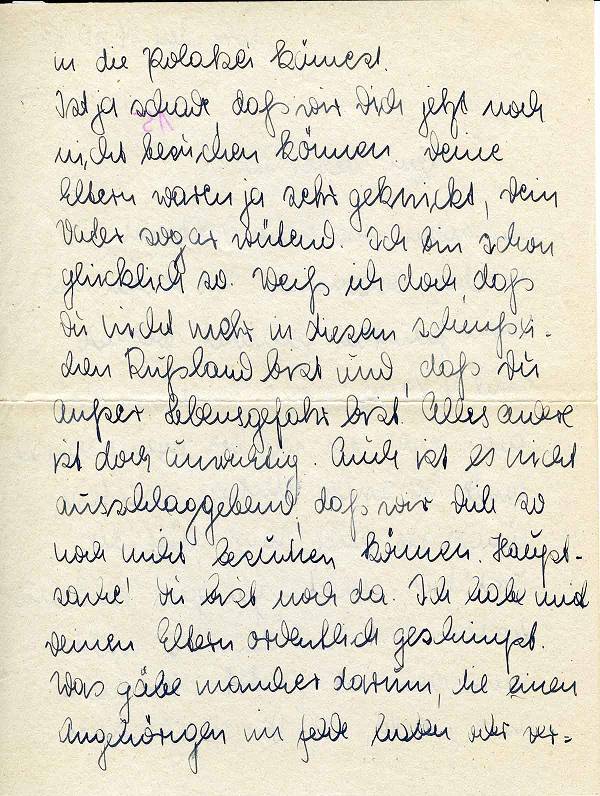 in die Polakei kämest.
Ist ja schade, daß wir Dich jetzt noch
nicht besuchen können. Deine
Eltern waren ja sehr geknickt, Dein
Vater sogar wütend. Ich bin schon
glücklich so. Weiß ich doch, daß
Du nicht mehr in diesem scheußli-
chen Rußland bist und, daß Du
außer Lebensgefahr bist. Alles andere
ist doch unwichtig. Auch ist es nicht
ausschlaggebend, daß wir Dich so
noch nicht besuchen können. Haupt-
sache! Du bist noch da. Ich habe mit
Deinen Eltern ordentlich geschimpft.
Was gäbe mancher darum, die einen
Angehörigen im Felde haben oder ver=